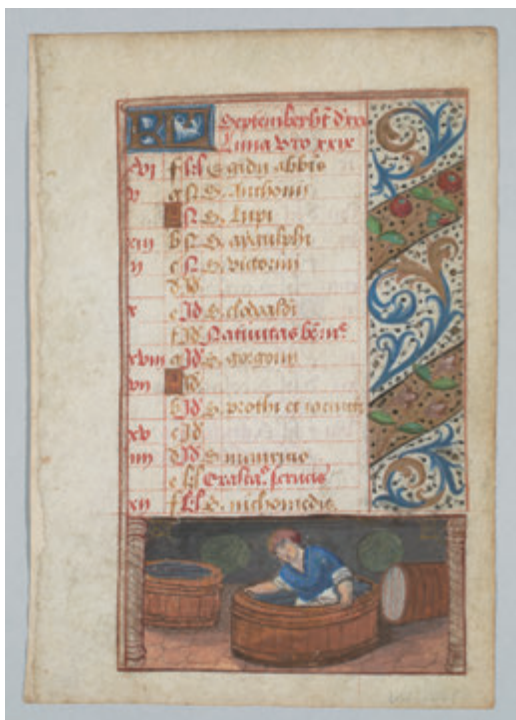 KL September ht d xxx
Luna vero xxix
xvi f kl S Egidii abbis
v g N S Anthonii
A N S Lupi
xiii b N S
ii c N S victorini
d N
x e Id S clodoaldi
f Id Nativitas be me
xviii g Id S gorgonii
vii A Id
b Id S prothi et iacincti
xv c Id
iiii d Id S maurino
e kl Exalta s crucis
xii f kl S nichomedis